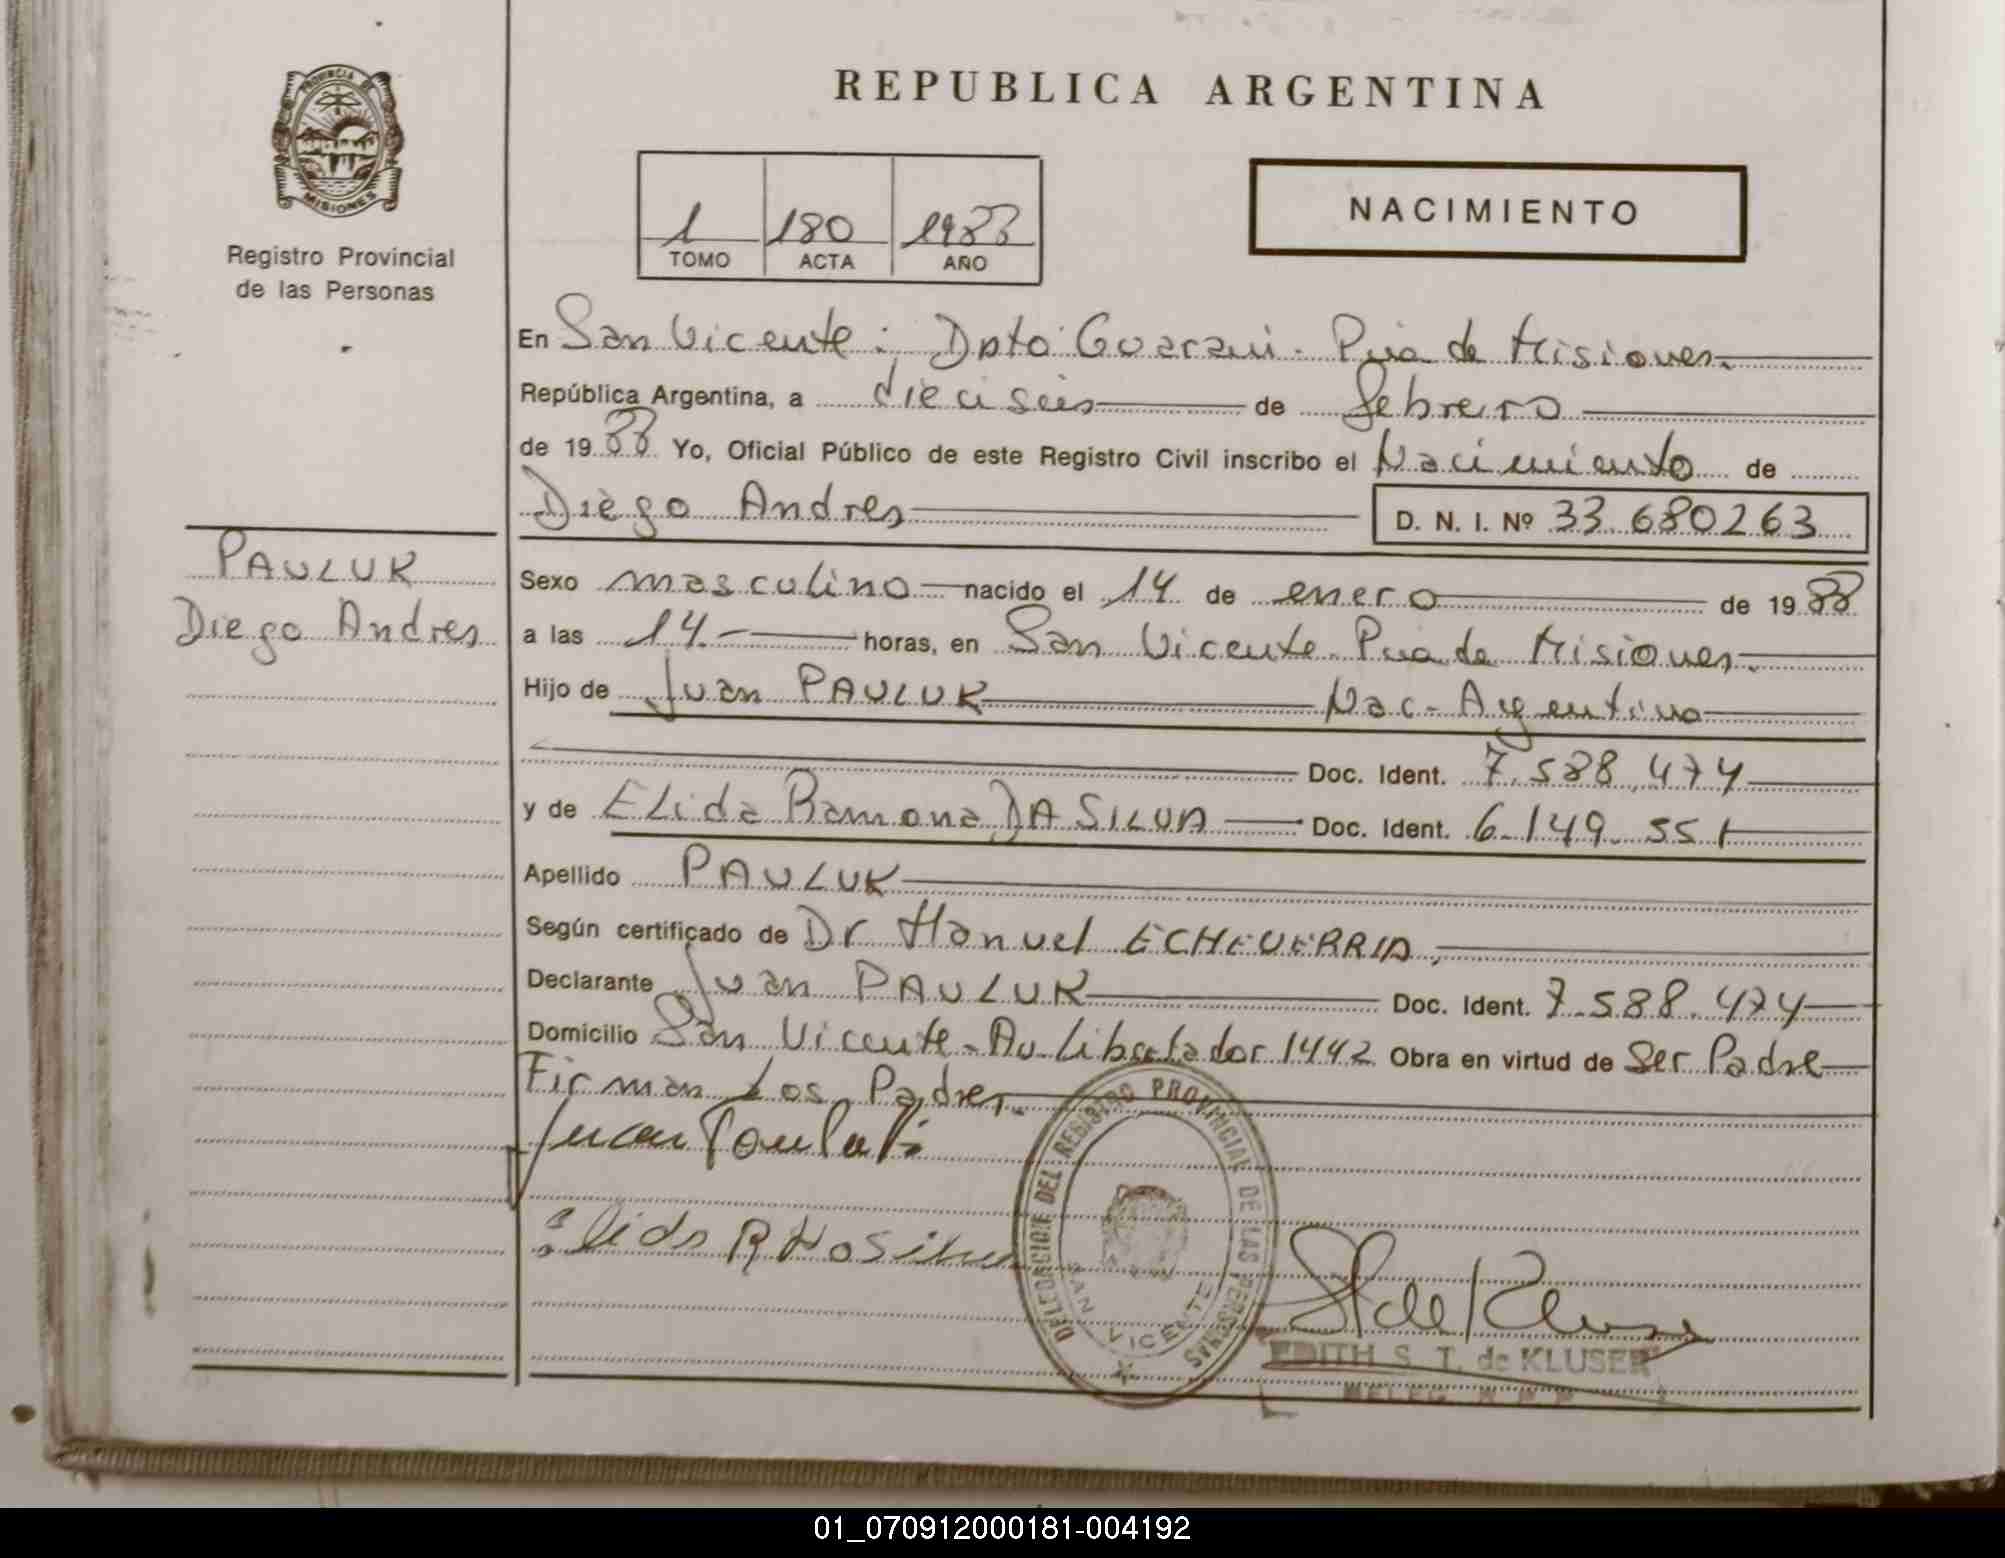 PROVINCIA DE
MISIONES
Registro Provincial
de las Personas
REPUBLICA ARGENTINA
1 180 1988
TOMO ACTA AÑO
NACIMIENTO
En San Vicente; Dpto Guarani. Pcia de Misiones.
República Argentina, a dieciseis de febrero
de 1988 Yo, Oficial Público de este Registro Civil inscribo el Nacimiento de
Diego Andres D. N. I. Nº 33.680263
PAULUK
Diego Andres
Sexo masculino nacido el 14 de enero de 1988
a las 14.- horas, en San Vicente Pcia de Misiones.
Hijo de Juan PAULUK Nac- Argentino
Doc. Ident. 7.588.474
y de Elida Ramona DA SILVA Doc. Ident. 6.149.551
Apellido PAULUK
Según certificado de Dr Manuel ECHEVERRIA,
Declarante Juan PAULUK Doc. Ident. 7.588.474
Domicilio San Vicente - Av Libertador 1442 Obra en virtud de Ser Padre
Firman Los Padres.
Juan
DELEGACION DEL REGISTRO PROVINCIAL DE LAS PERSONAS
SAN VICENTE
EDITH S. T. de KLUSER
01_070912000181-004192